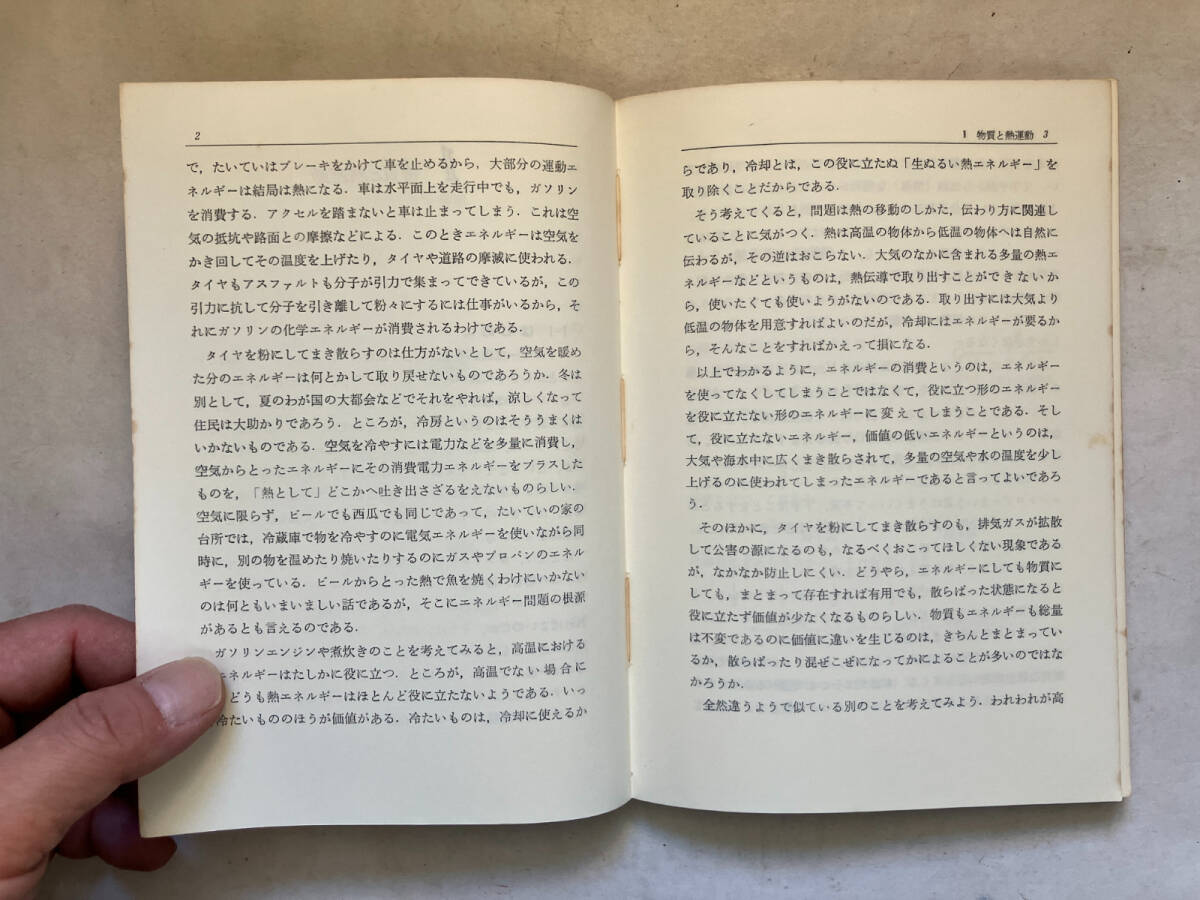 2
で，たいていはブレーキをかけて車を止めるから，大部分の運動エ
ネルギーは結局は熱になる．車は水平面上を走行中でも，ガソリン
を消費する．アクセルを踏まないと車は止まってしまう．これは空
気の抵抗や路面との摩擦などによる．このときエネルギーは空気を
かき回してその温度を上げたり，タイヤや道路の摩滅に使われる．
タイヤもアスファルトも分子が引力で集まってできているが，この
引力に抗して分子を引き離して粉々にするには仕事がいるから，そ
れにガソリンの化学エネルギーが消費されるわけである．
タイヤを粉にしてまき散らすのは仕方がないとして，空気を暖め
た分のエネルギーは何とかして取り戻せないものであろうか．冬は
別として，夏のわが国の大都会などでそれをやれば，涼しくなって
住民は大助かりであろう．ところが，冷房というのはそううまくは
いかないものである．空気を冷やすには電力などを多量に消費し，
空気からとったエネルギーにその消費電力エネルギーをプラスした
ものを，「熱として」どこかへ吐き出さざるをえないものらしい．
空気に限らず，ビールでも西瓜でも同じであって，たいていの家の
台所では，冷蔵庫で物を冷やすのに電気エネルギーを使いながら同
時に，別の物を温めたり焼いたりするのにガスやプロパンのエネル
ギーを使っている．ビールからとった熱で魚を焼くわけにいかない
のは何ともいまいましい話であるが，そこにエネルギー問題の根源
があるとも言えるのである．
ガソリンエンジンや煮炊きのことを考えてみると，高温における
エネルギーはたしかに役に立つ．ところが，高温でない場合に
どうも熱エネルギーはほとんど役に立たないようである．いっ
冷たいもののほうが価値がある．冷たいものは，冷却に使えるか
1 物質と熱運動 3
らであり，冷却とは，この役に立たぬ「生ぬるい熱エネルギー」を
取り除くことだからである．
そう考えてくると，問題は熱の移動のしかた，伝わり方に関連し
ていることに気がつく．熱は高温の物体から低温の物体へは自然に
伝わるが，その逆はおこらない．大気のなかに含まれる多量の熱エ
ネルギーなどというものは，熱伝導で取り出すことができないか
ら，使いたくても使いようがないのである．取り出すには大気より
低温の物体を用意すればよいのだが，冷却にはエネルギーが要るか
ら，そんなことをすればかえって損になる．
以上でわかるように，エネルギーの消費というのは，エネルギー
を使ってなくしてしまうことではなくて，役に立つ形のエネルギー
を役に立たない形のエネルギーに変えてしまうことである．そし
て，役に立たないエネルギー，価値の低いエネルギーというのは，
大気や海水中に広くまき散らされて，多量の空気や水の温度を少し
上げるのに使われてしまったエネルギーであると言ってよいであろ
う．
そのほかに，タイヤを粉にしてまき散らすのも，排気ガスが拡散
して公害の源になるのも，なるべくおこってほしくない現象である
が，なかなか防止しにくい．どうやら，エネルギーにしても物質に
しても，まとまって存在すれば有用でも，散らばった状態になると
役に立たず価値が少なくなるものらしい．物質もエネルギーも総量
は不変であるのに価値に違いを生じるのは，きちんとまとまってい
るか，散らばったり混ぜこぜになってかによることが多いのではな
かろうか．
全然違うようで似ている別のことを考えてみよう．われわれが高